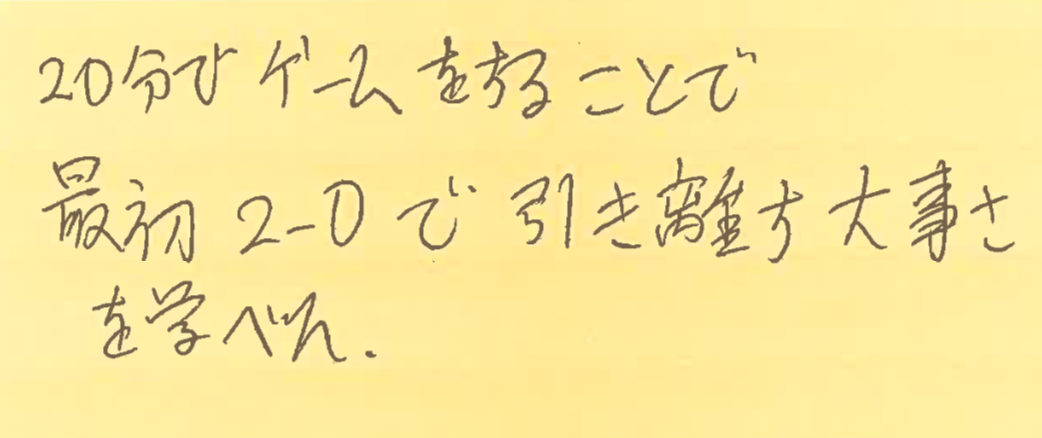 20分でゲームをすることで
最初2-0で引き離す大事さ
を学べた.